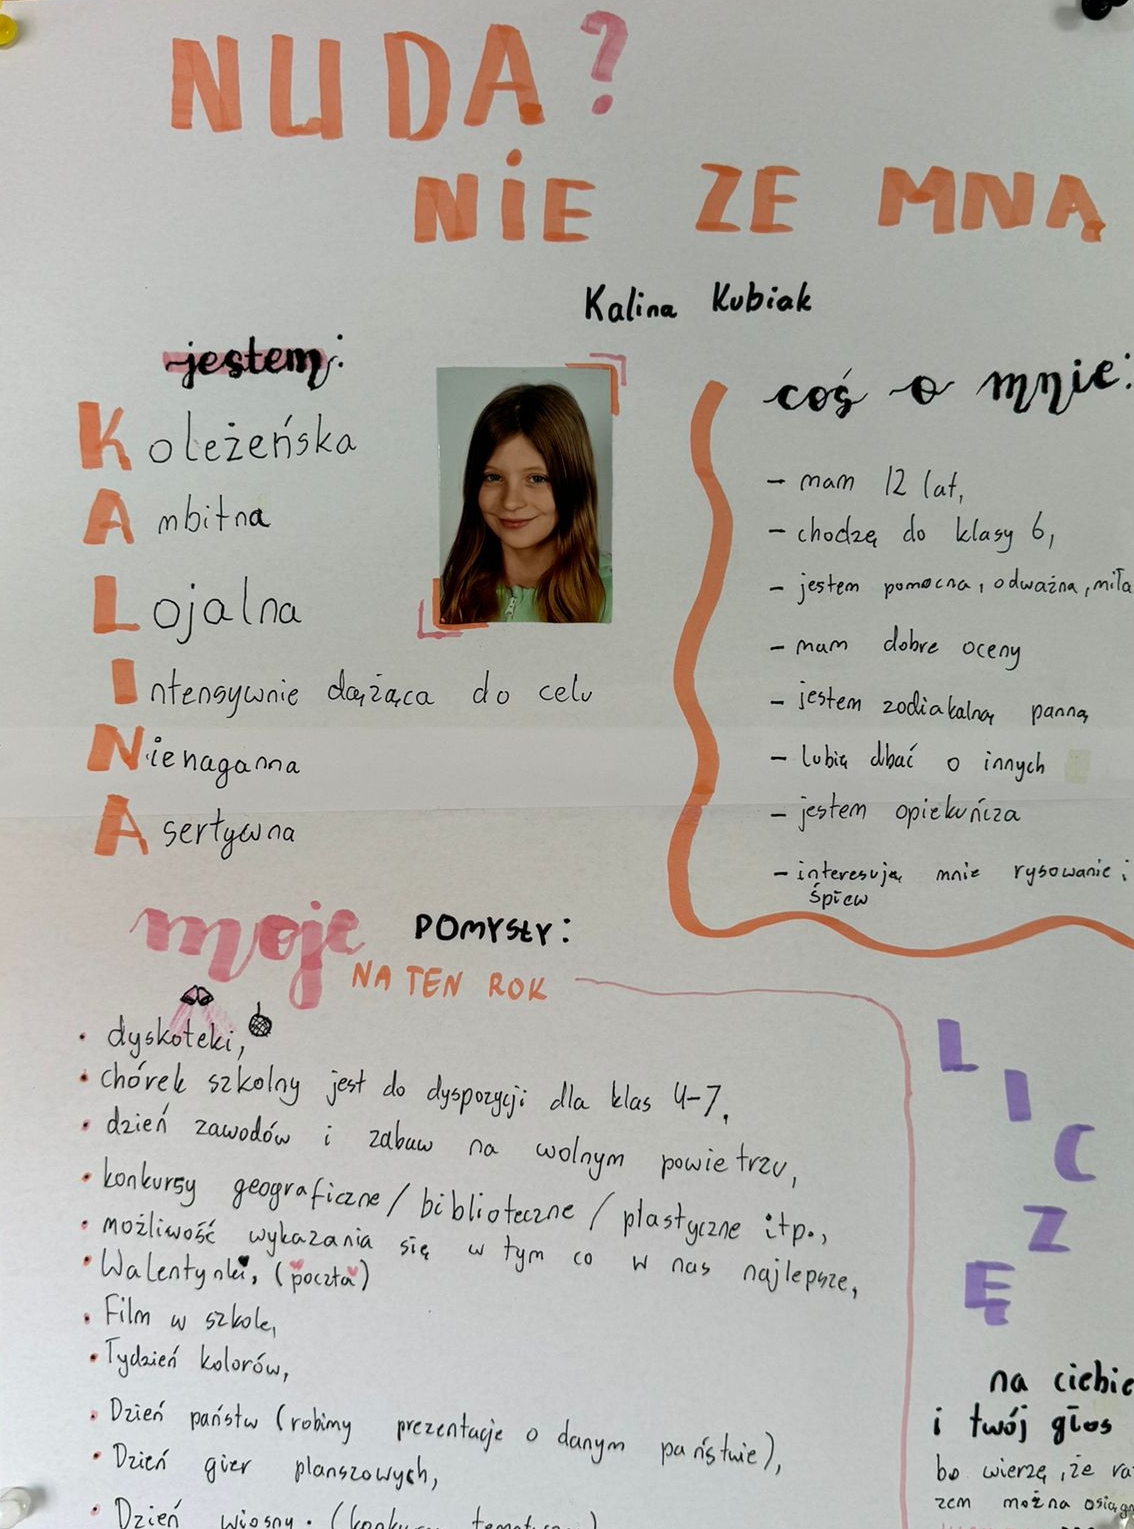 NUDA?
NIE ZE MNĄ
Kalina Kubiak
jestem:
Koleżeńska
Ambitna
Lojalna
Intensywnie dążąca do celu
Nienaganna
Asertywna
coś o mnie:
- mam 12 lat,
- chodzę do klasy 6,
- jestem pomocna, odważna, miła
- mam dobre oceny
- jestem zodiakalną panną
- lubię dbać o innych
- jestem opiekuńcza
- interesuję mnie rysowanie i
śpiew
moje POMYSŁY:
NA TEN ROK
• dyskoteki,
• chórek szkolny jest do dyspozycji dla klas 4-7,
• dzień zawodów i zabaw na wolnym powietrzu,
• konkursy geograficzne / biblioteczne / plastyczne itp.,
• możliwość wykazania się w tym co w nas najlepsze,
• Walentynki, (poczta)
• Film w szkole,
• Tydzień kolorów,
• Dzień państw (robimy prezentacje o danym państwie),
• Dzień gier planszowych,
• Dzień wiosny.
LICZĘ
na ciebie
i twój głos
bo wierzę, że ra
zem można osiągn